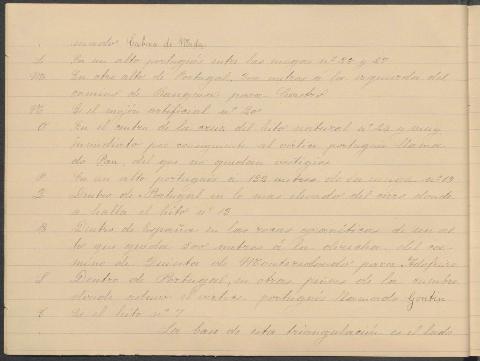 minado Cabeza de Meda.
L En un alto portugués entre las mugas nº 22 y 27
M En otro alto de Portugal, 300 metros a la izquierda del
camino de para
N Es el mojón artificial nº 20
O En el centro de la cruz del hito natural nº 24 y muy
inmediato por consiguiente al vértice portugués llama
do Pau, del que no quedan vestigios
P En un alto portugués a 122 metros de la muga nº 19
Q Dentro de Portugal en lo mas elevado del cerro donde
se halla el hito nº 12
R Dentro de España en las rocas graníticas de un al
to que queda 300 metros á la derecha del ca-
mino de Quinta de Monteredondo para
S Dentro de Portugal, en otras peñas de la cumbre
donde estuvo el vértice portugués llamado Gontin
T Es el hito nº 7
La base de esta triangulación es el lado